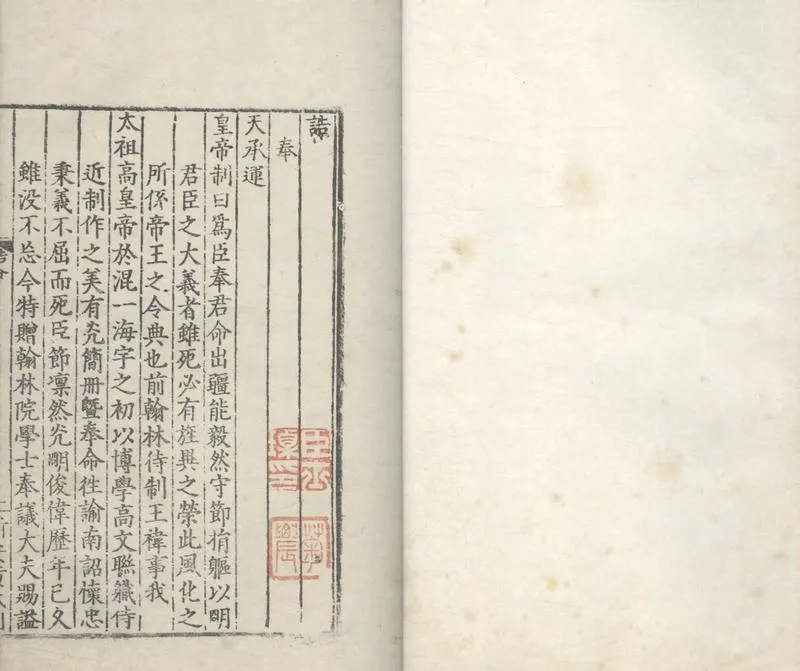 誥
奉
天承運
皇帝制曰爲臣奉君命出疆能毅然守節捐軀以明
君臣之大義者雖死必有旌異之榮此風化之
所係帝王之令典也前翰林待制王禕事我
太祖高皇帝於混一海宇之初以博學高文聯軄侍
近制作之美有光簡冊暨奉命徃諭南詔懷忠
秉義不屈而死臣節凛然光明俊偉歷年已久
雖没不忘今特贈翰林院學士奉議大夫賜謚